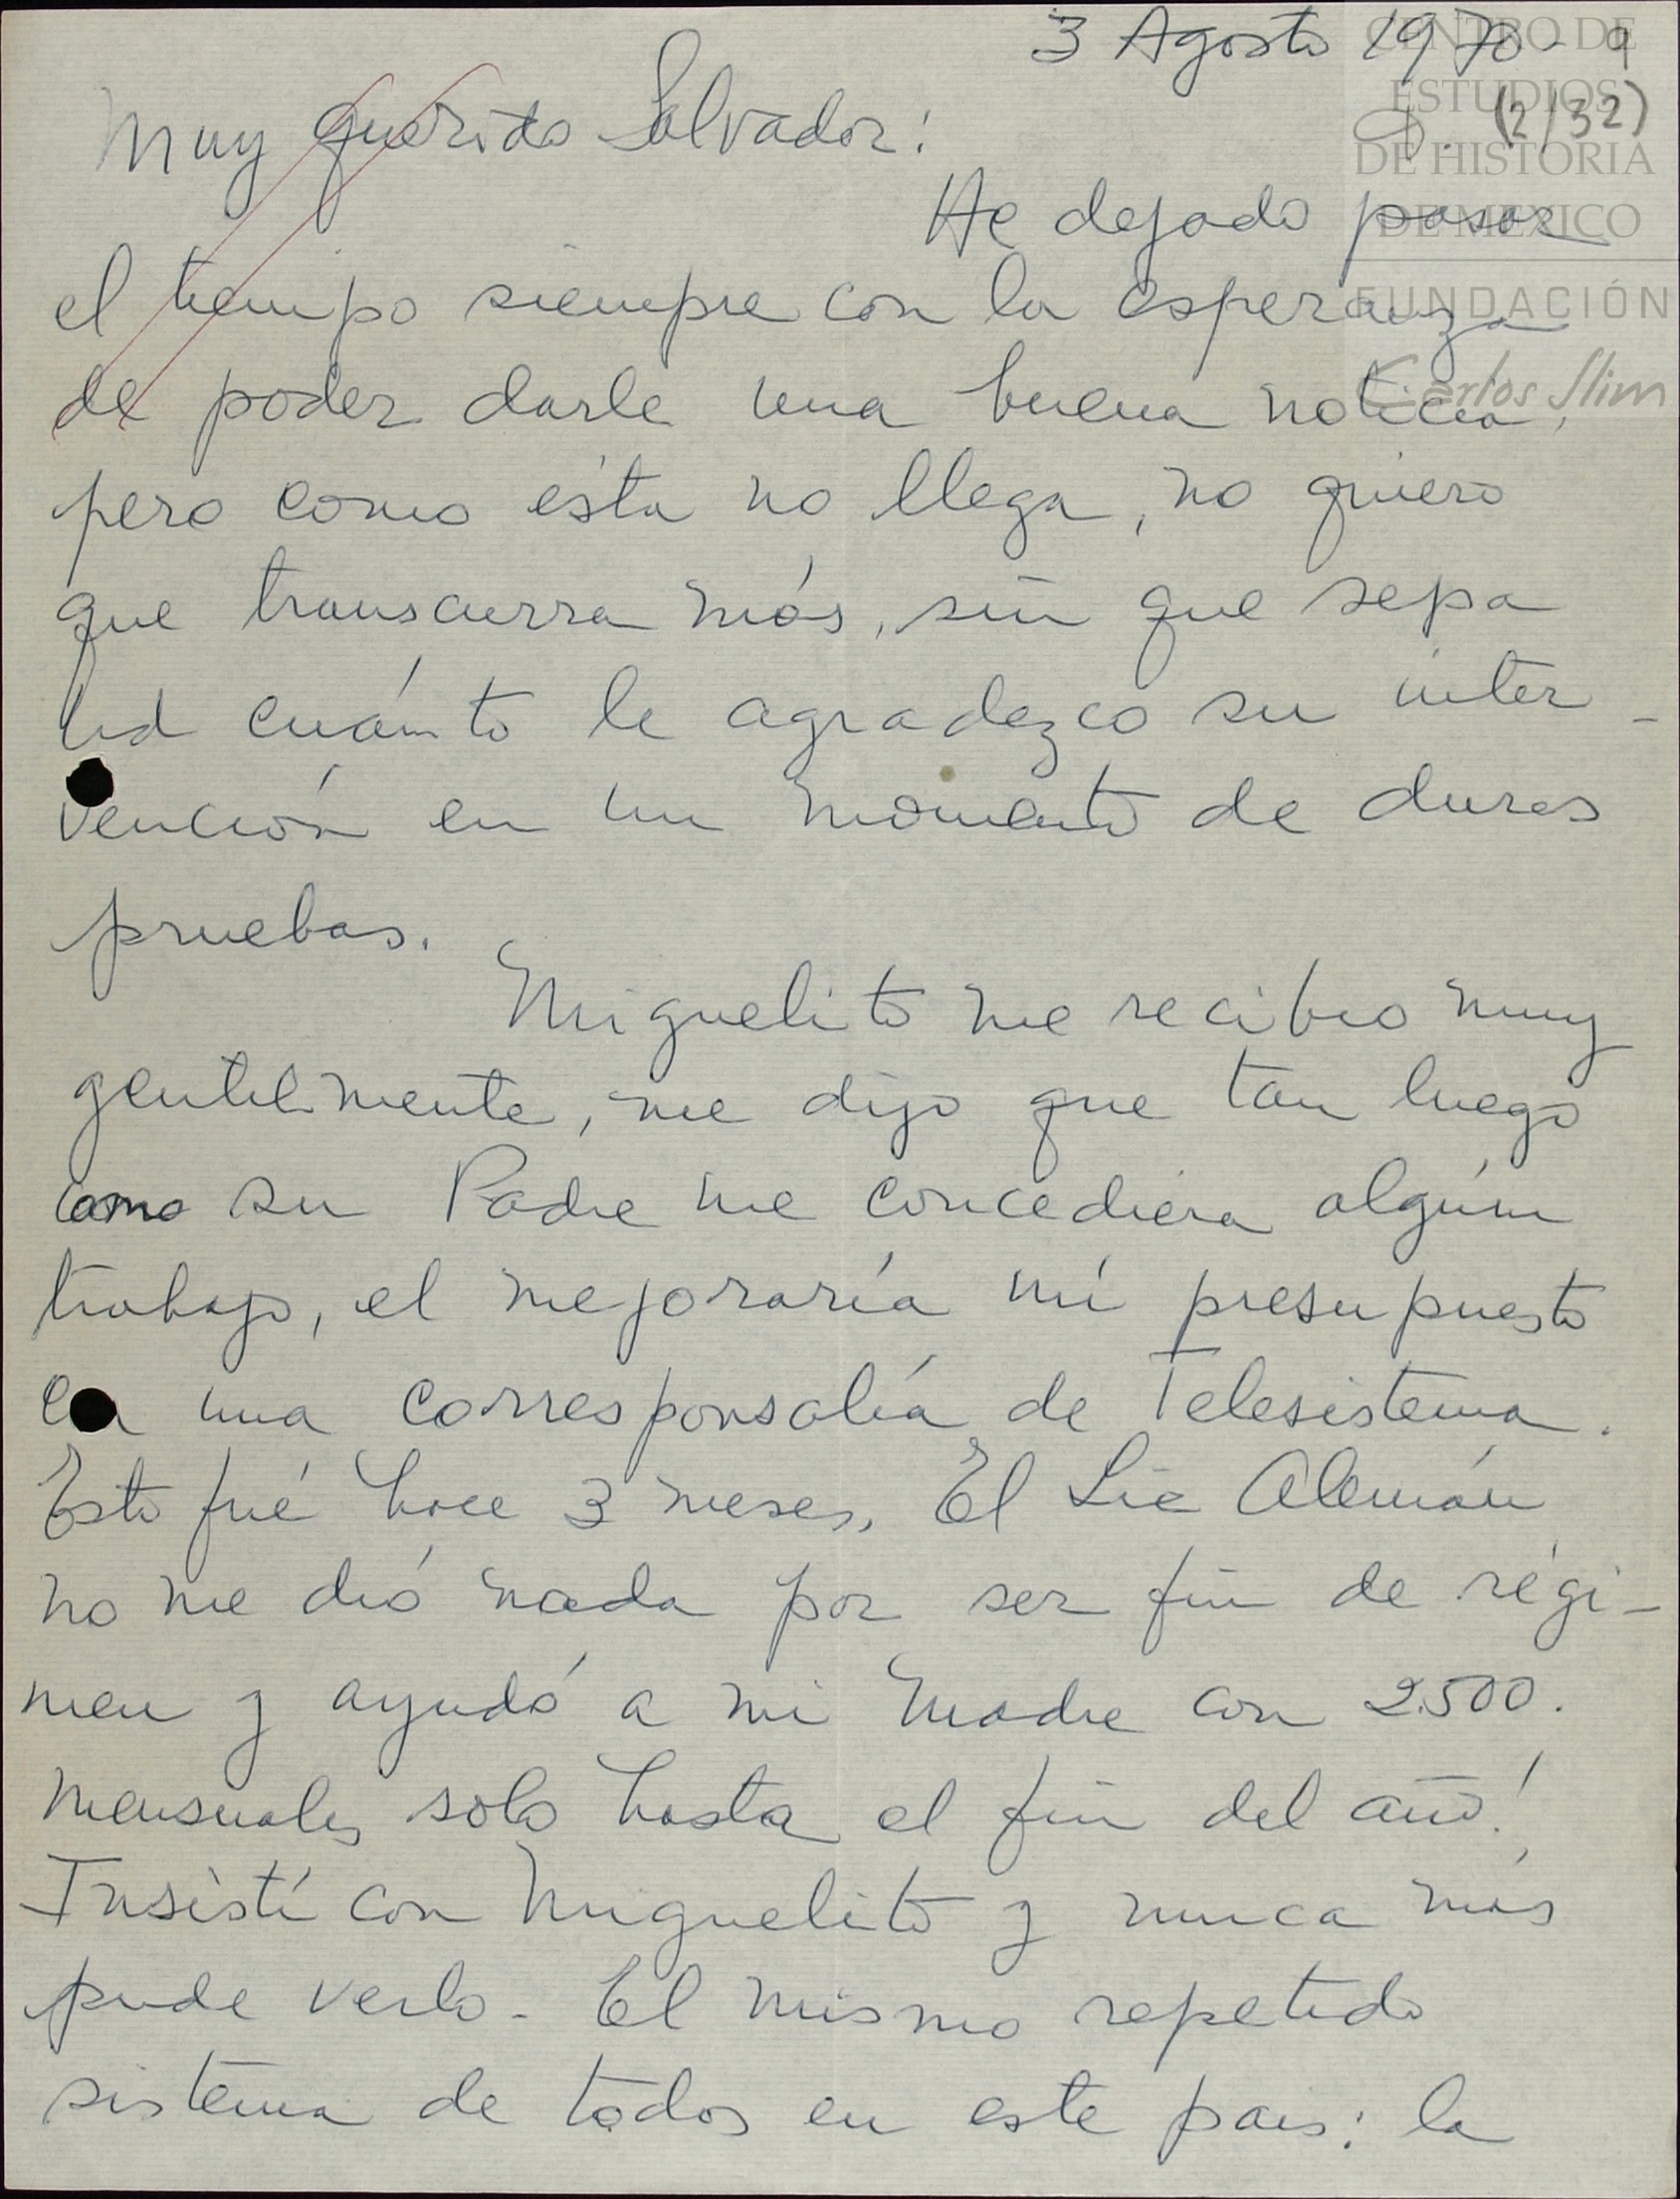 3 Agosto 1970 - 9
(2/32)
Muy querido Salvador:
He dejado pasar
el tiempo siempre con la esperanza
de poder darle una buena noticia,
pero como ésta no llega, no quiero
que transcurra más, sin que sepa
Ud cuánto le agradezco su inter-
vención en un momento de duras
pruebas.
Miguelito me recibio muy
gentilmente, me dijo que tan luego
como su Padre me concediera algún
trabajo, el mejoraría mí presupuesto
con una corresponsalía de Telesistema.
Esto fué hace 3 meses. El Lic Alemán
no me dió nada por ser fin de régi-
men y ayudó a mi madre con 2.500.
mensuales solo hasta el fin del año!
Insistí con Miguelito y nunca más
pude verlo - El mismo repetido
sistema de todos en este pais: la
CENTRO DE
ESTUDIOS
DE HISTORIA
DE MÉXICO
FUNDACIÓN
Carlos Slim